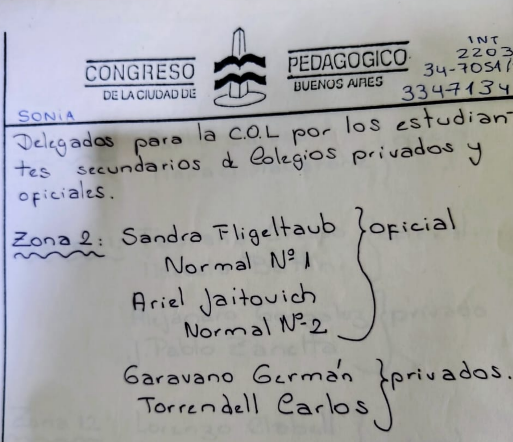 CONGRESO PEDAGOGICO
DE LA CIUDAD DE BUENOS AIRES
INT
2203
34-7051/
3347134
SONIA
Delegados para la C.O.L por los estudian-
tes secundarios de Colegios privados y
oficiales.
Zona 2: Sandra Fligeltaub } oficial
Normal Nº 1
Ariel Jaitovich
Normal Nº-2
Garavano Germán } privados.
Torrendell Carlos